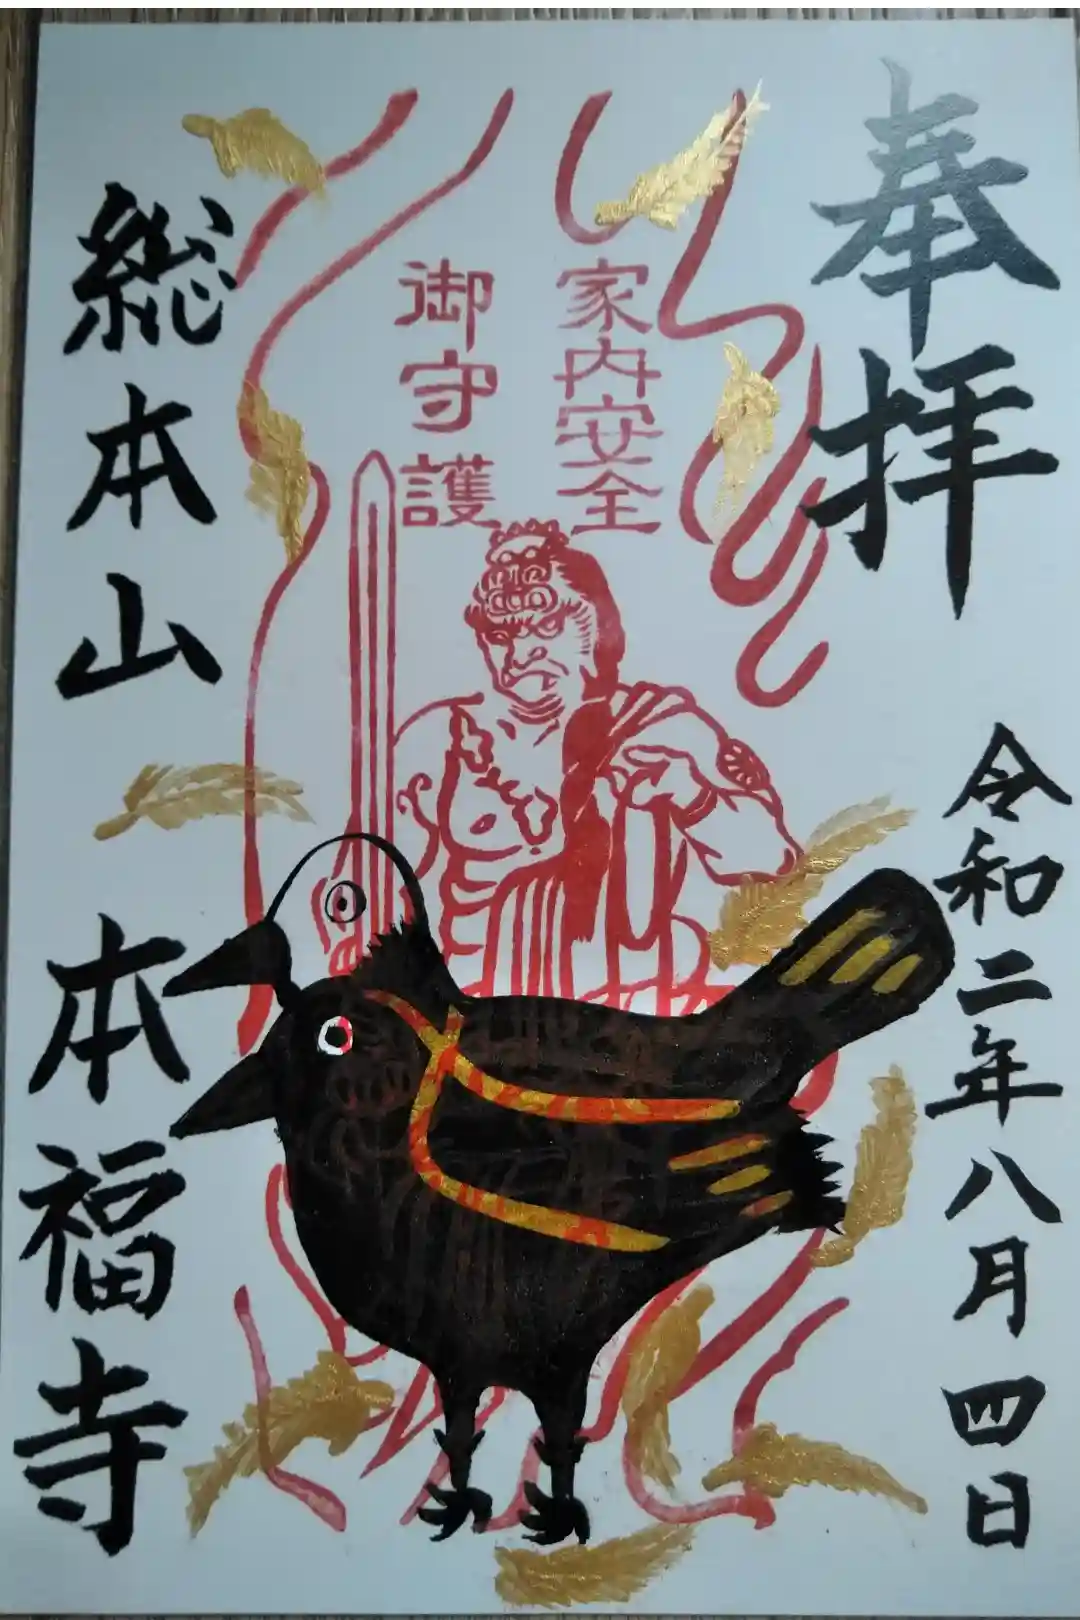 奉拝
令和二年八月四日
家内安全
御守護
総本山
本福寺